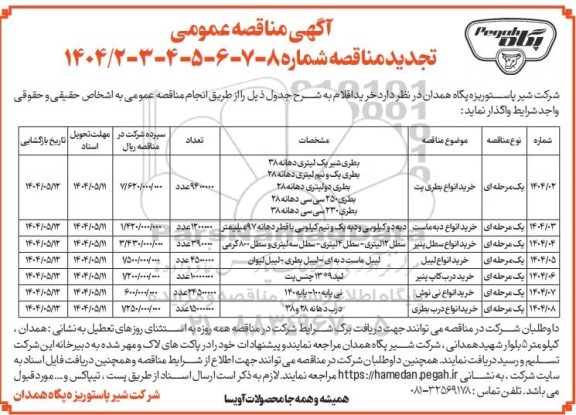 Pegah
پگاه
آگهی مناقصه عمومی
تجدید مناقصه شماره ۸-۷-۶-۵-۴-۳-۱۴۰۴/۲
شرکت شیر پاستوریزه پگاه همدان در نظر دارد خرید اقلام به شرح جدول ذیل را از طریق انجام مناقصه عمومی به اشخاص حقیقی و حقوقی
واجد شرایط واگذار نماید:
شماره نوع مناقصه موضوع مناقصه مشخصات تعداد سپرده شرکت در مناقصه ریال مهلت تحویل اسناد تاریخ بازگشایی
۱۴۰۴/۰۲ یک مرحله ای خرید انواع بطری پت بطری شیر یک لیتری دهانه ۳۸
بطری یک و نیم لیتری دهانه ۲۸
بطری دو لیتری دهانه ۲۸
بطری ۲۵۰ سی سی دهانه ۲۸
بطری ۲۳۰ سی سی دهانه ۳۸
۹۴۰۰۰۰۰ عدد ۷/۶۲۰/۰۰۰/۰۰۰ ۱۴۰۴/۰۵/۱۱ ۱۴۰۴/۰۵/۱۲
۱۴۰۴/۰۳ یک مرحله ای خرید انواع دبه ماست دبه دو کیلویی و دبه یک و نیم کیلویی با قطر دهانه ۹۷ میلیمتر ۱۲۰۰۰۰۰ عدد ۱/۴۲۰/۰۰۰/۰۰۰ ۱۴۰۴/۰۵/۱۱ ۱۴۰۴/۰۵/۱۲
۱۴۰۴/۰۴ یک مرحله ای خرید انواع سطل پنیر سطل ۱۲ لیتری - سطل ۴ لیتری - سطل سه لیتری و سطل ۸۰۰ گرمی ۳۹۰۰۰۰ عدد ۳/۴۳۰/۰۰۰/۰۰۰ ۱۴۰۴/۰۵/۱۱ ۱۴۰۴/۰۵/۱۲
۱۴۰۴/۰۵ یک مرحله ای خرید انواع لیبل لیبل ماست دبه ای - لیبل بطری - لیبل لیوان ۴۵۰۰۰۰۰ عدد ۷/۵۰۰/۰۰۰/۰۰۰ ۱۴۰۴/۰۵/۱۱ ۱۴۰۴/۰۵/۱۲
۱۴۰۴/۰۶ یک مرحله ای خرید درب کاپ پنیر لید ۹*۱۳ جنس پت ۱۰۰۰۰۰۰ عدد ۱/۲۰۰/۰۰۰/۰۰۰ ۱۴۰۴/۰۵/۱۱ ۱۴۰۴/۰۵/۱۲
۱۴۰۴/۰۷ یک مرحله ای خرید انواع نی نوش نی پایه ۱۰۰ - پایه ۱۴۰ ۲۴۵۰۰۰۰ عدد ۶۰۰/۰۰۰/۰۰۰ ۱۴۰۴/۰۵/۱۱ ۱۴۰۴/۰۵/۱۲
۱۴۰۴/۰۸ یک مرحله ای خرید انواع درب بطری درب دهانه ۲۸ و ۳۸ ۱۵۰۰۰۰۰ عدد ۷/۳۵۰/۰۰۰/۰۰۰ ۱۴۰۴/۰۵/۱۱ ۱۴۰۴/۰۵/۱۲
داوطلبان شرکت در مناقصه می توانند جهت دریافت برگ شرایط شرکت در مناقصه همه روزه به استثنای روزهای تعطیل به نشانی: همدان،
کیلومتر ۵ بلوار شهید همدانی، شرکت شیر پگاه همدان مراجعه نمایند و پیشنهادات خود را در پاکت های لاک و مهر شده به دبیرخانه این شرکت
تسلیم و رسید دریافت نمایند. همچنین داوطلبان شرکت در مناقصه می توانند جهت اطلاع از شرایط مناقصه و همچنین دریافت فایل اسناد به
سایت شرکت، به نشانی https://hamedan.pegah.ir مراجعه نمایند. لازم به ذکر است ارسال اسناد از طریق پست، تیپاکس و... مورد قبول
می باشد. تلفن تماس: ۳۲۵۶۹۱۷۸-۰۸۱
همیشه و همه جا محصولات آویسا
شرکت شیر پاستوریزه پگاه همدان